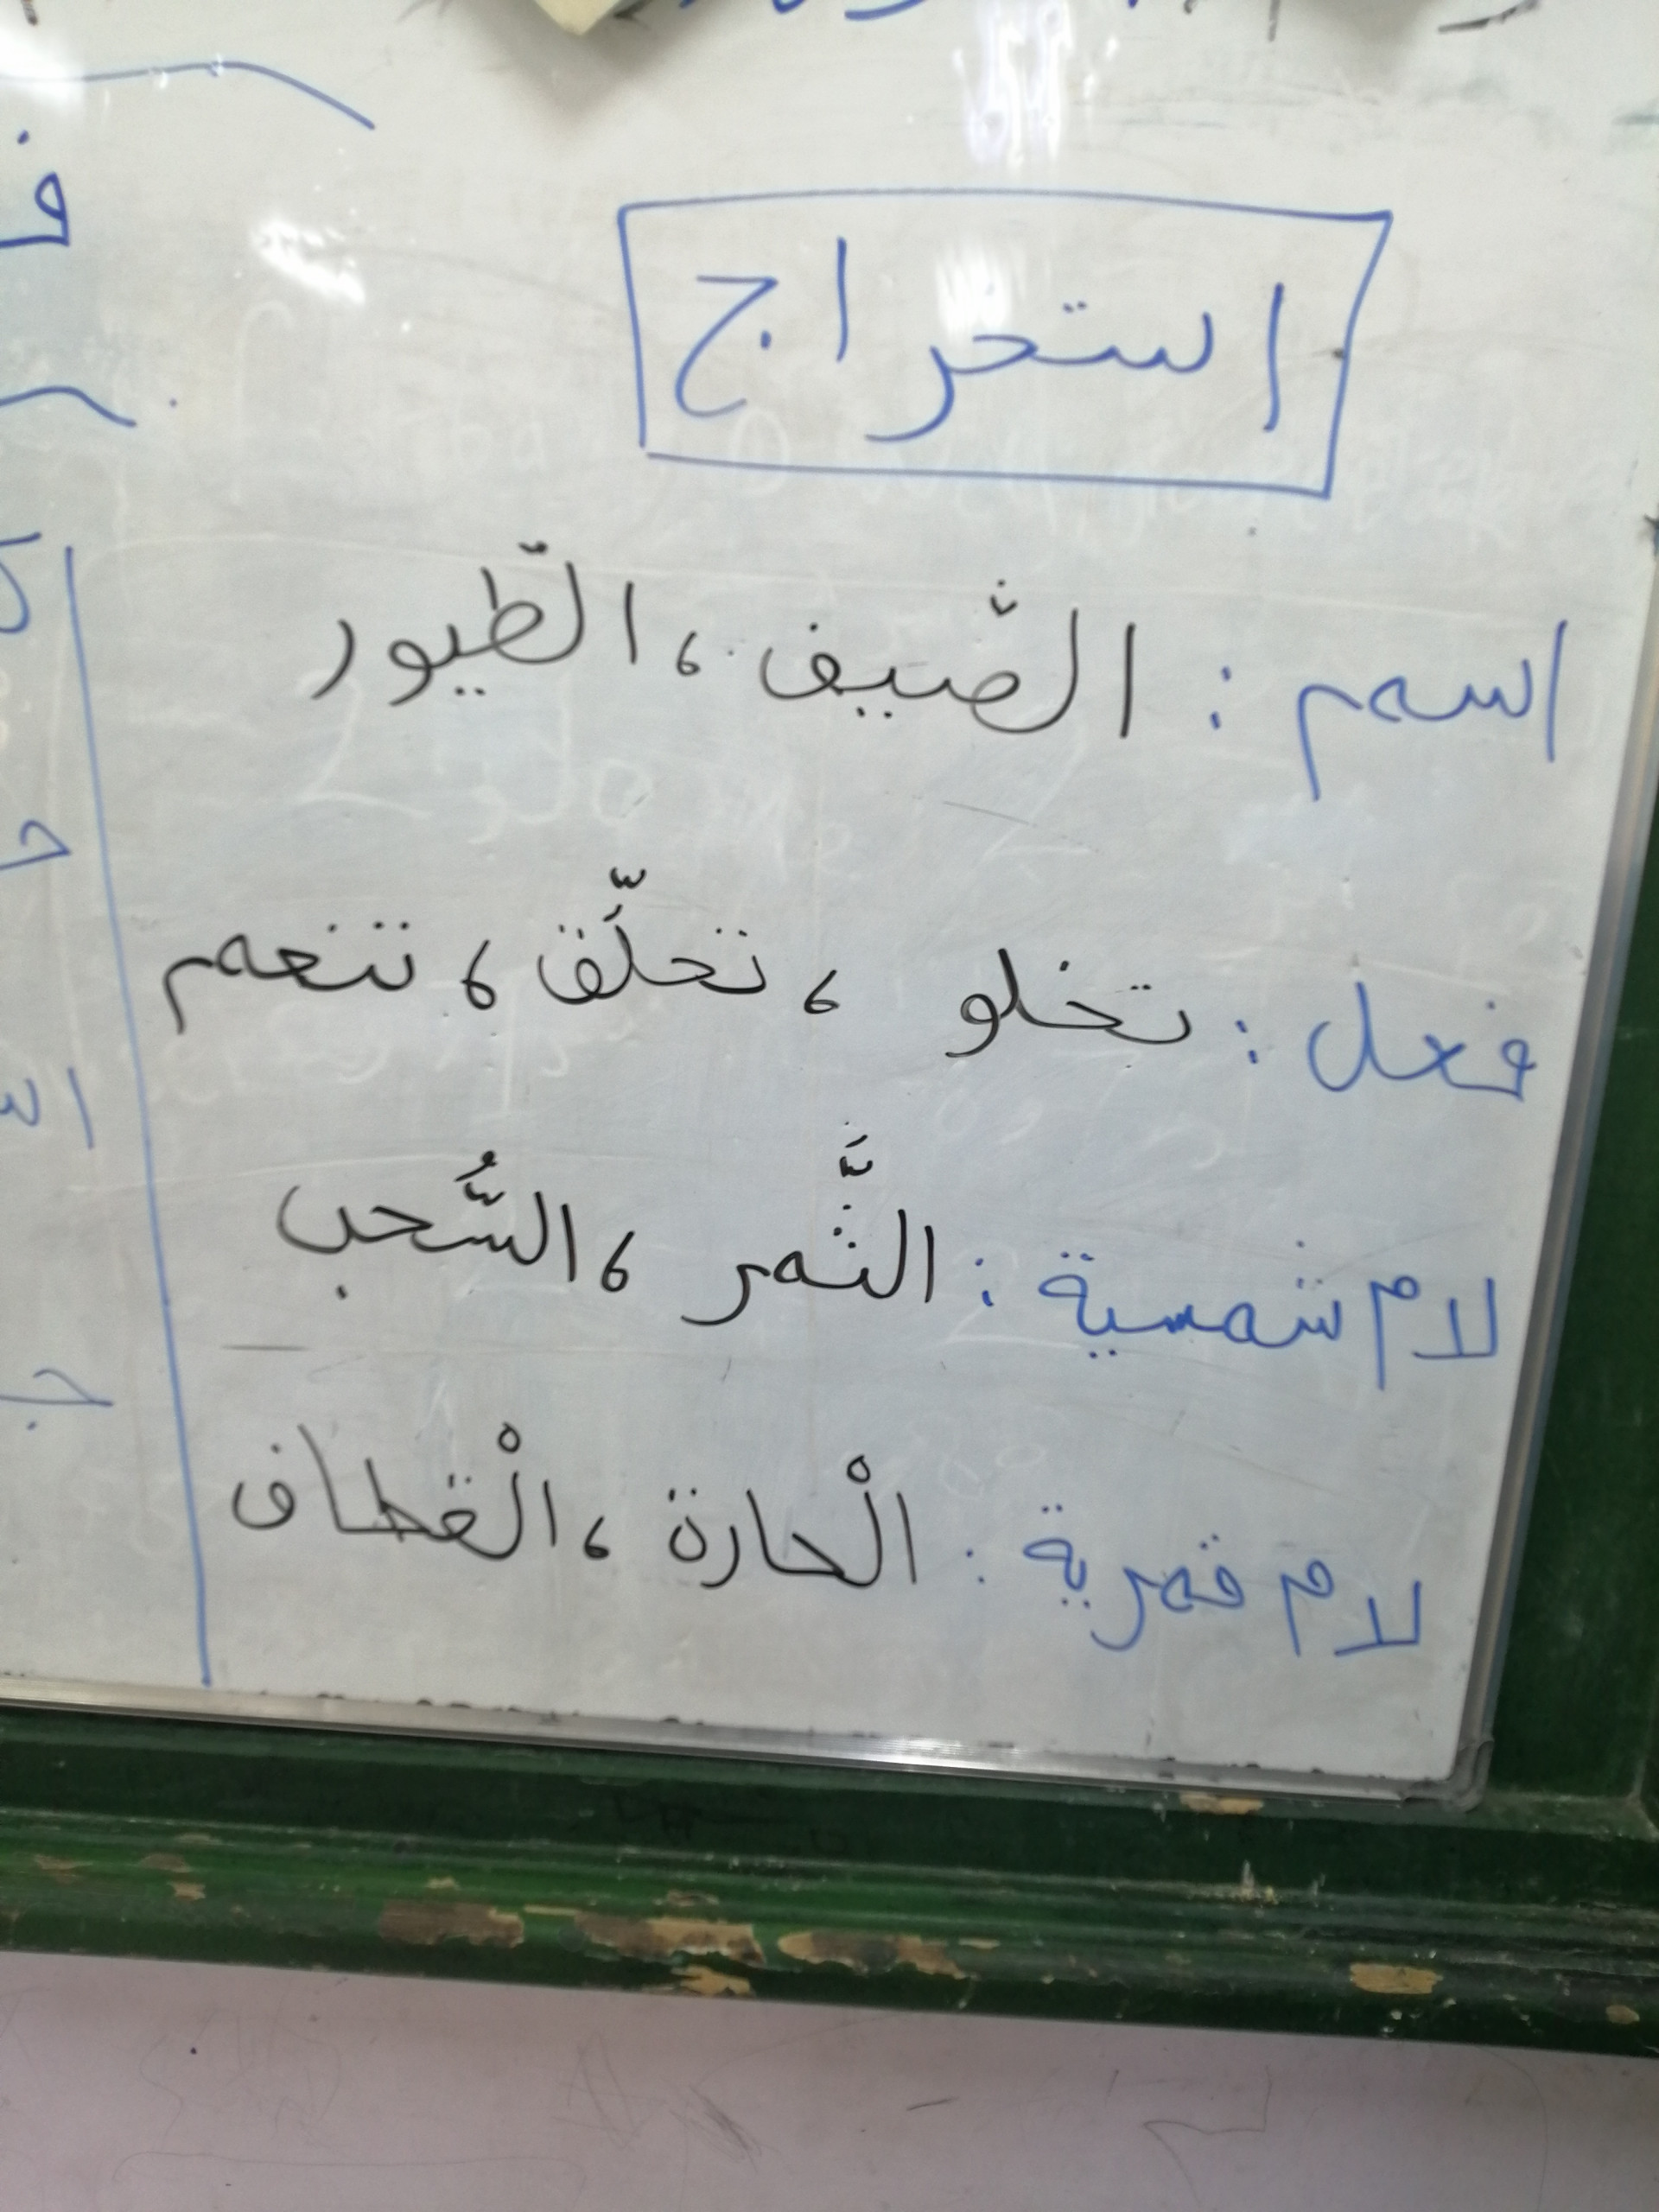 استخراج
اسم : الصّيف ، الطّيور
فعل : تخلو ، تحلّق ، تنعم
لام شمسية : الثَّمر ، السُّحب
لام قمرية : الْحارة ، الْقطاف